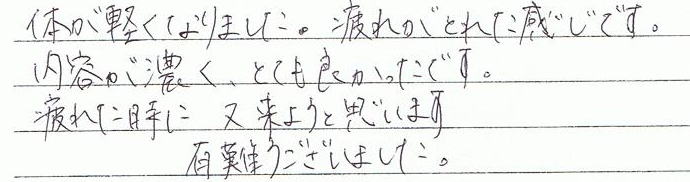 体が軽くなりました。疲れがとれた感じです。
内容が濃く、とても良かったです。
疲れた時に 又来ようと思います
有難うございました。